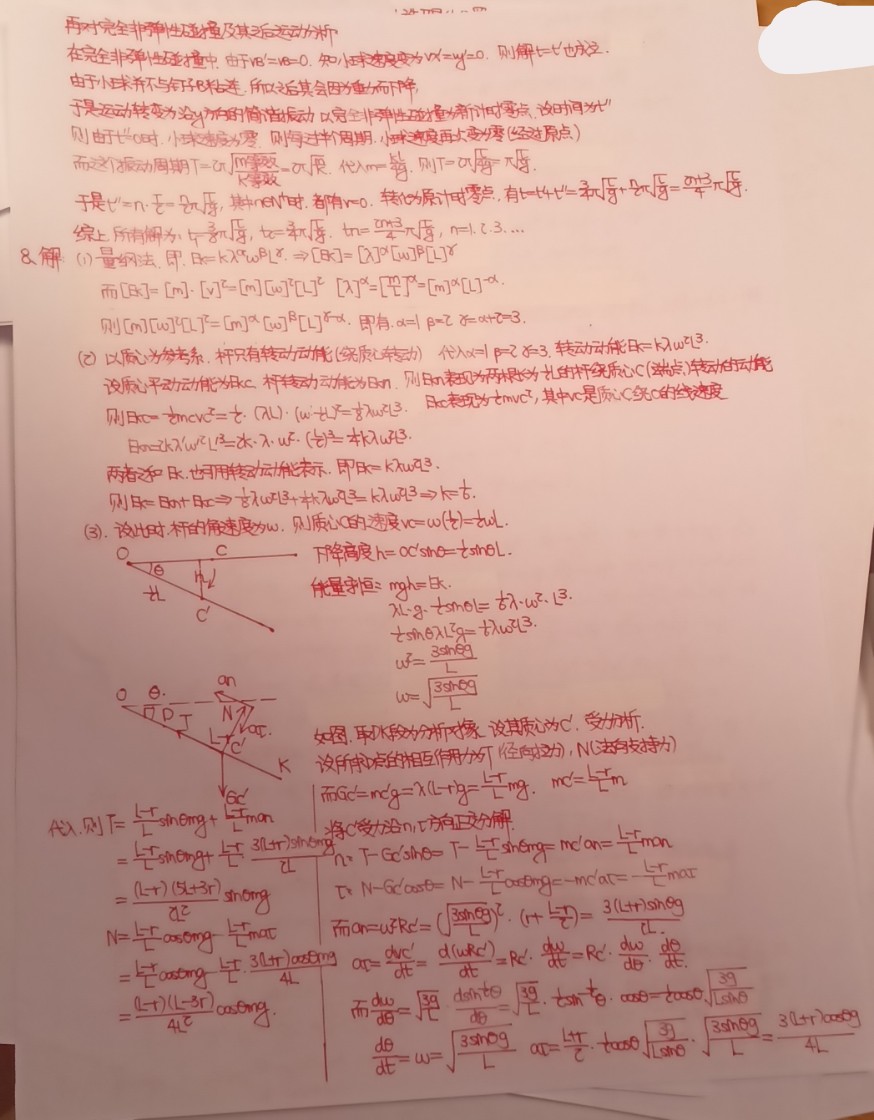 再对完全非弹性碰撞及其之后运动分析
在完全非弹性碰撞中,由于vB'=vB=0. 知小球速度变为vx'=vy'=0. 则解t=t'也成立.
由于小球并不与钉子B粘连,所以之后其会因为重力而下降.
于是运动转变为沿y方向的简谐振动 以完全非弹性碰撞为新计时零点 设时间为t''
则由于t''=0时,小球速度为零,则每过半个周期,小球速度再次变为零(经过原点)
而这个振动周期T=2π√ 代入m= 则T=2π√ =π√
于是t''=n·T/2= 其中n∈N*时,都有v=0. 转化为原计时零点,有t=t'+t''=
综上,所有解为: n=1.2.3...
8.解 (1) 量纲法,即:Ek=kλ^αω^βL^γ. ⇒[Ek]=[λ]^α[ω]^β[L]^γ
而[Ek]=[m]·[v]²=[m][ω]²[L]² [λ]^α=[m/L]^α=[m]^α[L]^-α.
则[m][ω]²[L]²=[m]^α[ω]^β[L]^γ-α. 即有.α=1 β=2 γ=α+2=3.
(2) 以质心为参考系,杆只有转动动能(绕质心转动) 代入α=1 β=2 γ=3. 转动动能Ek=kλω²L³.
设质心平动动能为Ekc, 杆转动动能为Ekn. 则Ekn表现为两根长为½L的杆绕质心C(端点)转动的动能
则Ekc=½mcvc²=½·(λL)·(ω·½L)²=⅛λω²L³. Ekc表现为½mvc²,其中vc是质心C绕O的线速度
Ekn=2kλ'ω'²L'³=2k·λ·ω²·(L/2)³=¼kλω²L³.
两者之和Ek.也可用转动动能表示,即Ek=kλω²L³.
则Ek=Ekn+Ekc⇒⅛λω²L³+¼kλω²L³=kλω²L³⇒k=⅙.
(3). 设此时,杆的角速度为ω. 则质心C的速度vc=ω(L/2)=½ωL.
O C
θ h
½L
C'
下降高度h=OC'sinθ=½sinθL.
能量守恒: mgh=Ek.
λL·g·½sinθL=⅙λ·ω²·L³.
½sinθλL²g=⅙λω²L³.
ω²=3sinθg/L
ω=√(3sinθg/L)
O θ. an
D T N aτ.
C' K
Gc'
如图,取DK段为分析对象,设其质心为C',受力分析.
设所求D点的相互作用力为T(径向拉力),N(法向支持力)
而Gc'=mc'g=λ(L-r)g=(L-r)/L mg. mc'=(L-r)/L m
将C'受力沿n,τ方向正交分解.
n: T-Gc'sinθ=T-(L-r)/L sinθmg=mc'an=(L-r)/L man
τ: N-Gc'cosθ=N-(L-r)/L cosθmg=-mc'aτ=-(L-r)/L maτ
而an=ω²Rc'=(√(3sinθg/L))²·(r+(L-r)/2)=3(L+r)sinθg/2L.
aτ=dvc'/dt=d(ωRc')/dt=Rc'·dω/dt=Rc'·dω/dθ·dθ/dt.
而dω/dθ=√(3g/L)·dsin^½θ/dθ=√(3g/L)·½sin^-½θ·cosθ=½cosθ√(3g/Lsinθ)
dθ/dt=ω=√(3sinθg/L) aτ=(L+r)/2·½cosθ√(3g/Lsinθ)·√(3sinθg/L)=3(L+r)cosθg/4L
代入.则T=(L-r)/L sinθmg+(L-r)/L man
=(L-r)/L sinθmg+(L-r)/L·3(L+r)sinθmg/2L
=(L-r)(5L+3r)/2L² sinθmg
N=(L-r)/L cosθmg-(L-r)/L maτ
=(L-r)/L cosθmg-(L-r)/L·3(L+r)cosθmg/4L
=(L-r)(L-3r)/4L² cosθmg.